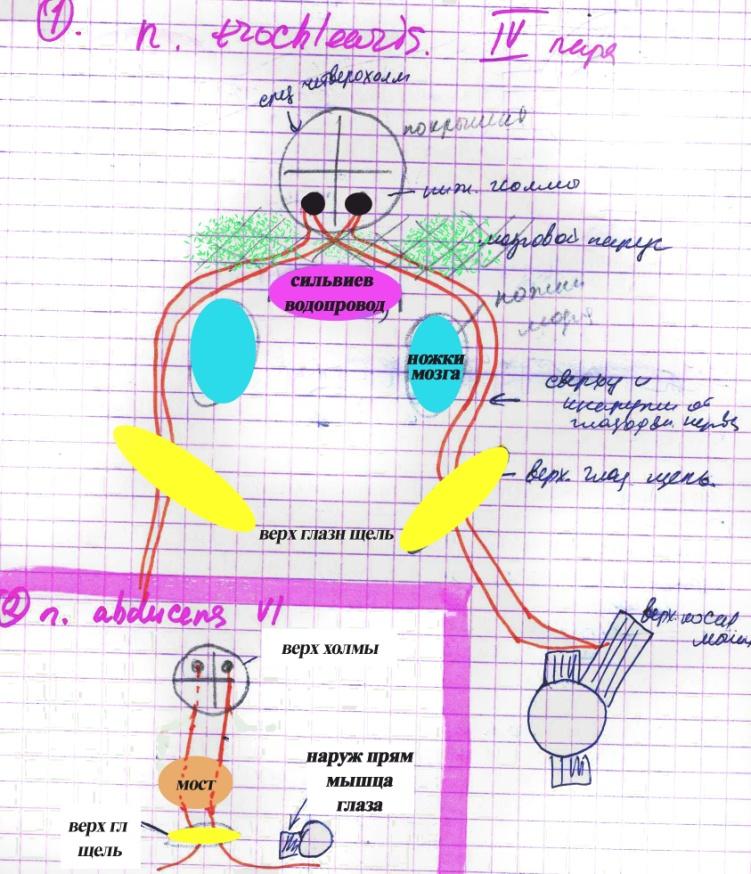 1. n. trochlearis. IV пара
четверохолм
покрышка
ниж. холмо
мозговой парус
сильвиев
водопровод
ножки
ножки
мозга
сверху и
кнаружи от
верх. глаз щель.
верх глазн щель
2 n. abducens VI
верх холмы
верх. косая
наруж прям
мышца
глаза
мост
верх гл
щель